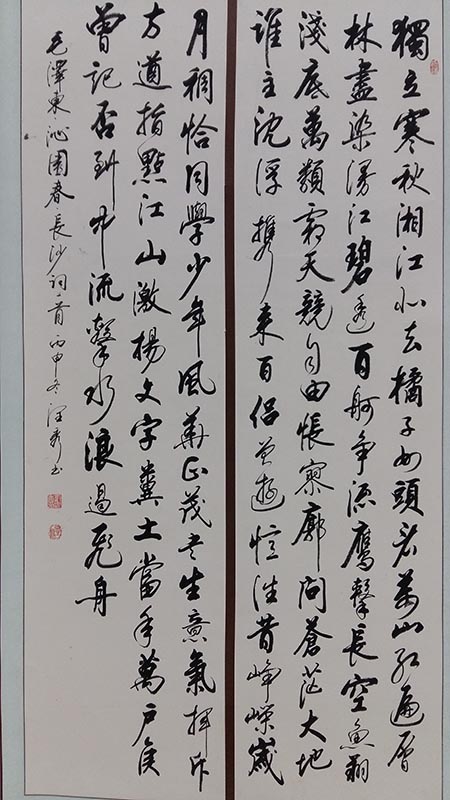 獨立寒秋湘江北去橘子洲頭看萬山紅遍層
林盡染漫江碧透百舸争流鷹擊長空魚翔
淺底萬類霜天競自由悵寥廓問蒼茫大地
誰主沈浮携來百侶曾遊憶往昔崢嶸歲
月稠恰同學少年風華正茂書生意氣揮斥
方遒指點江山激揚文字糞土當年萬戶侯
曾記否到中流擊水浪遏飛舟
毛澤東沁園春長沙詞一首丙申冬書